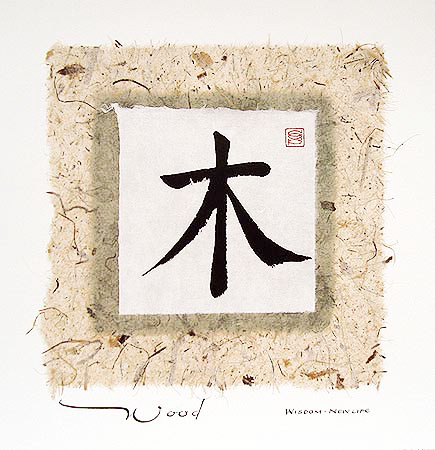 木
Wood
WISDOM - NEW LIFE